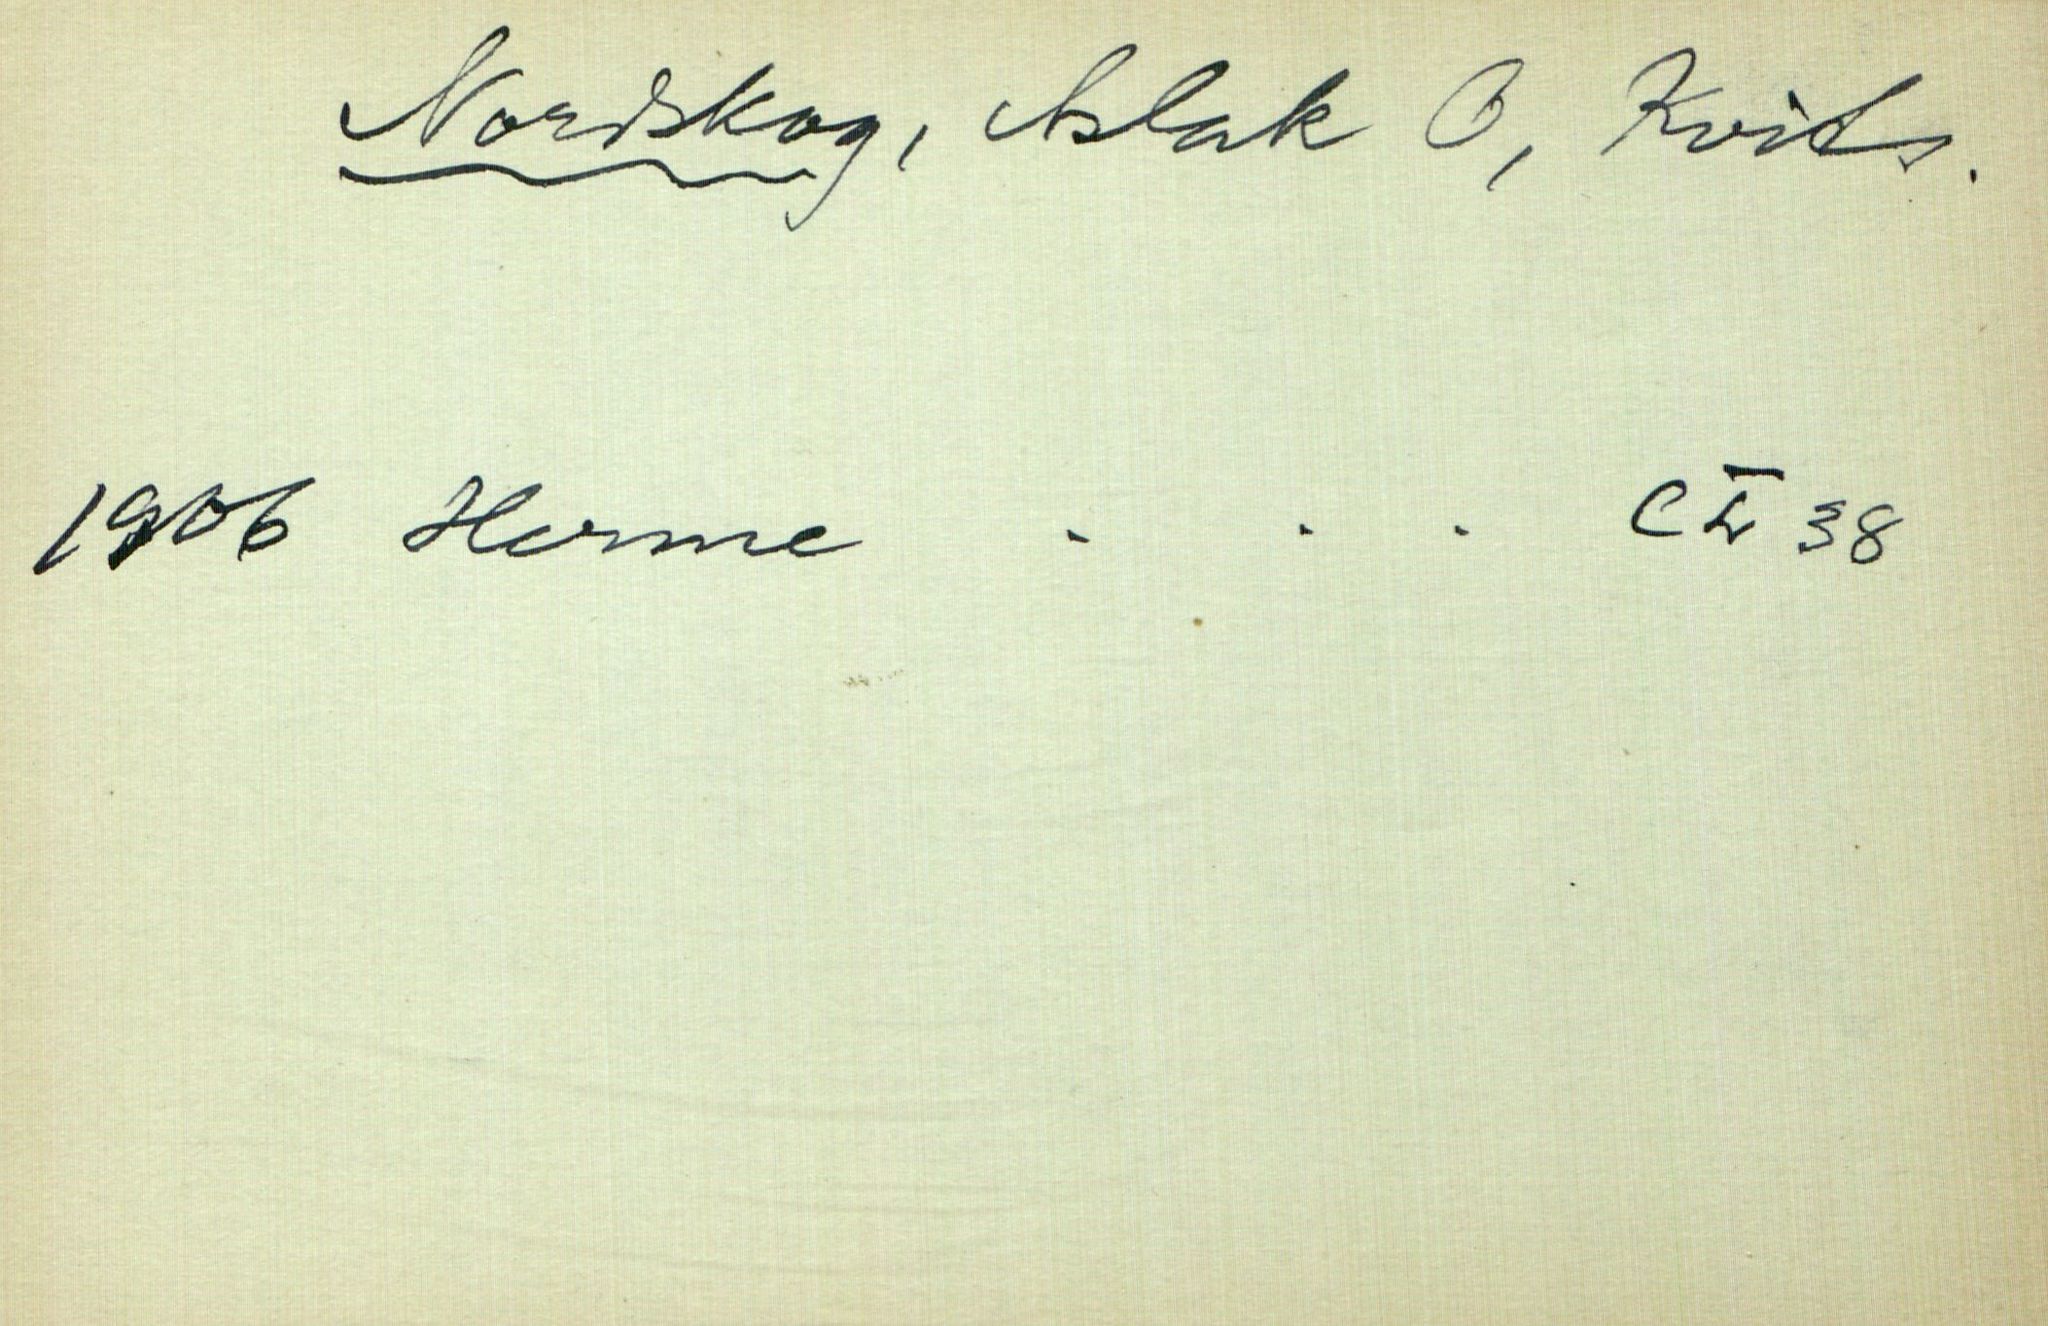 Nordskog, Aslak O, Kvits.
1906 Herme . . . C 38